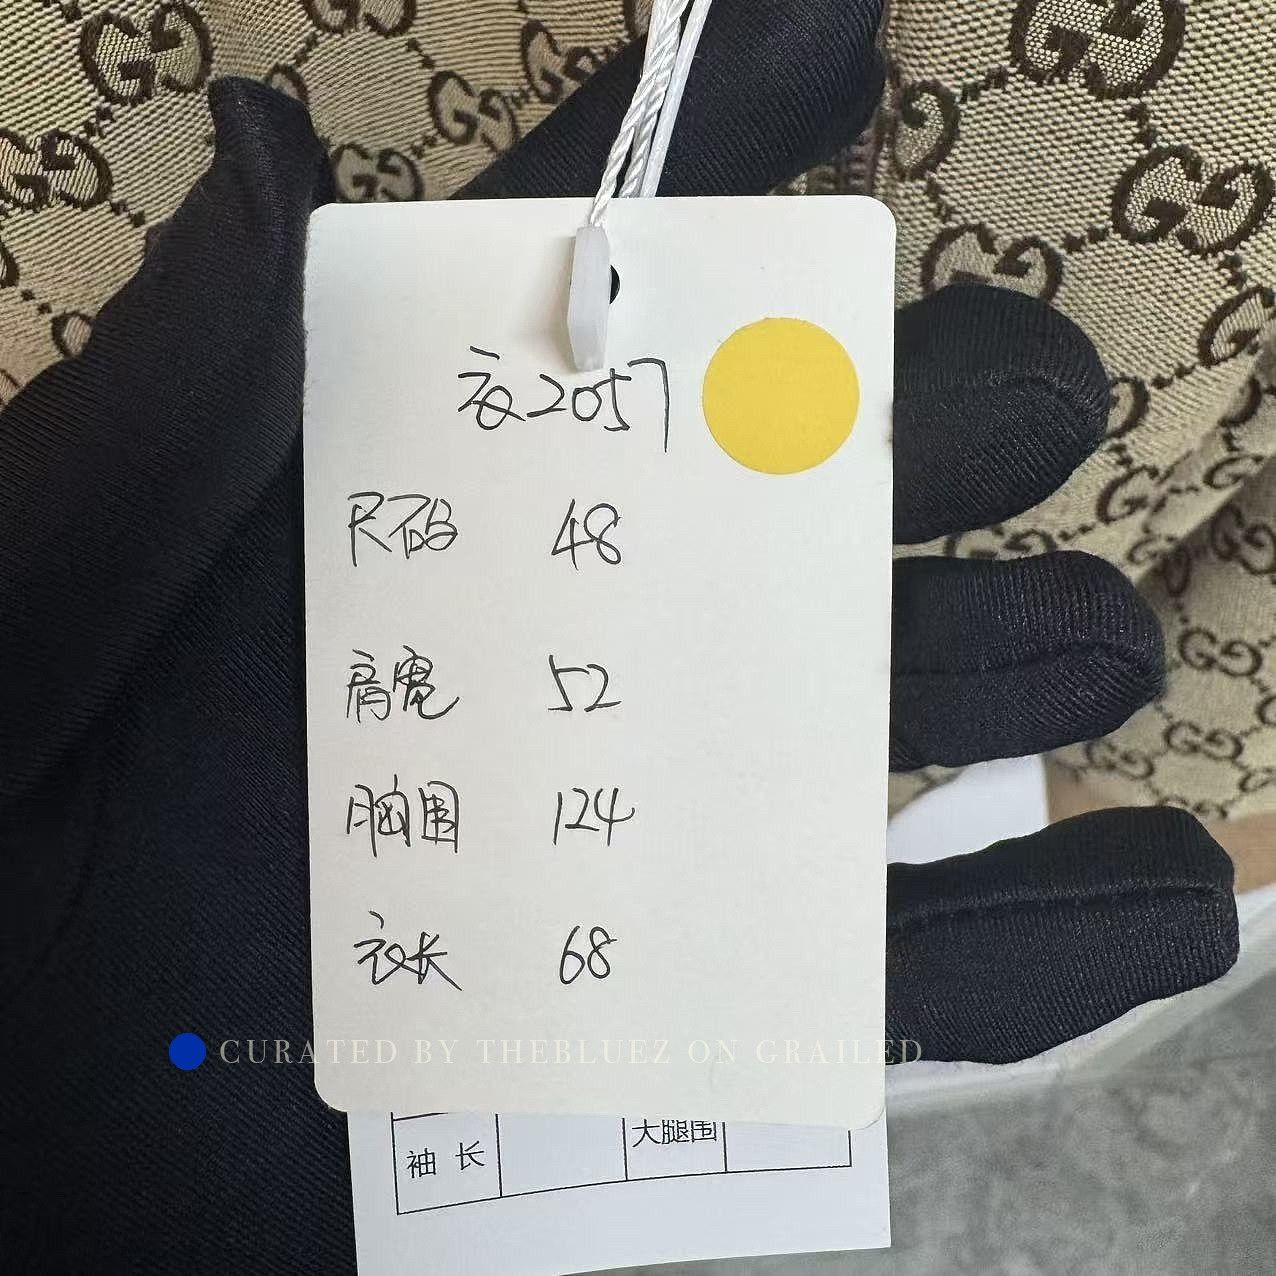 衣2057
尺码 48
肩宽 52
胸围 124
衣长 68
CURATED BY THEBLUEZ ON GRAILED
袖 长 大腿围